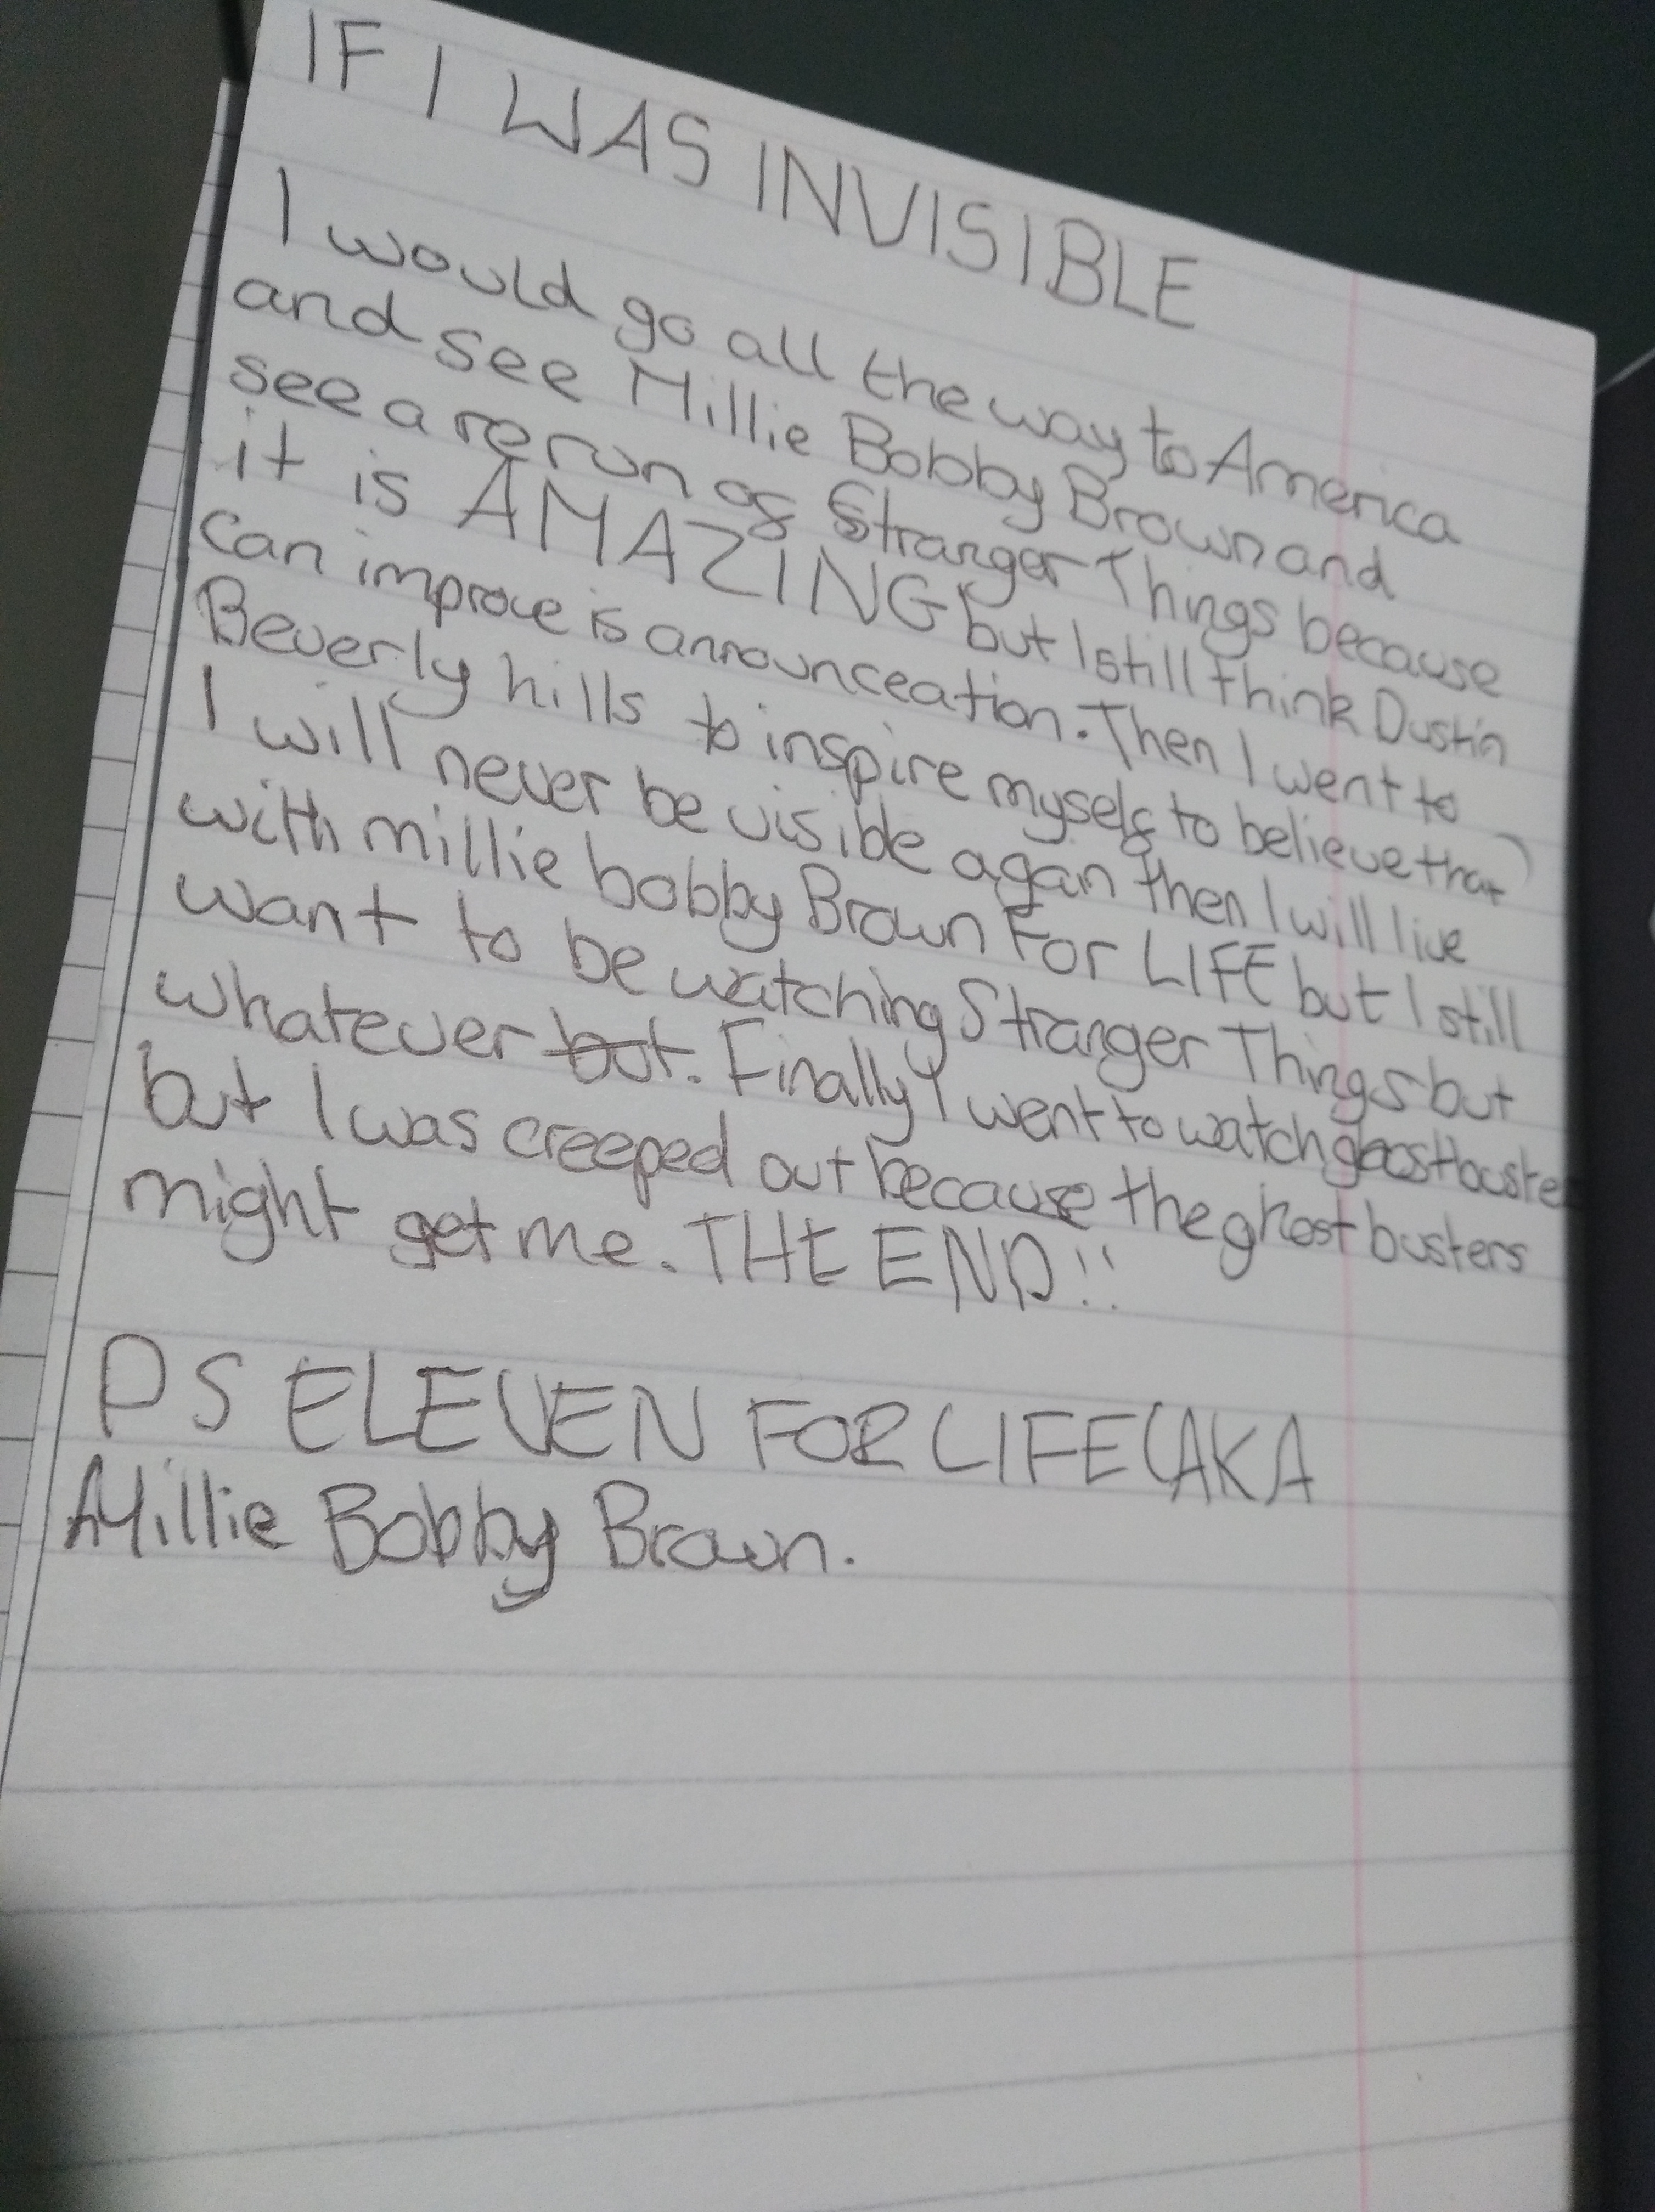 IF I WAS INVISIBLE
I would go all the way to America
and see Millie Bobby Brown and
see a rerun of Stranger Things because
it is AMAZING but I still think Dustin
can improve is announceation. Then I went to
Beverly hills to inspire myself to believe that
I will never be visible again then I will live
with millie bobby Brown For LIFE but I still
want to be watching Stranger Things but
whatever but. Finally I went to watch
but I was creeped out because the ghost busters
might get me. THE END!!
PS ELEVEN FOR LIFE(AKA
Millie Bobby Brown.